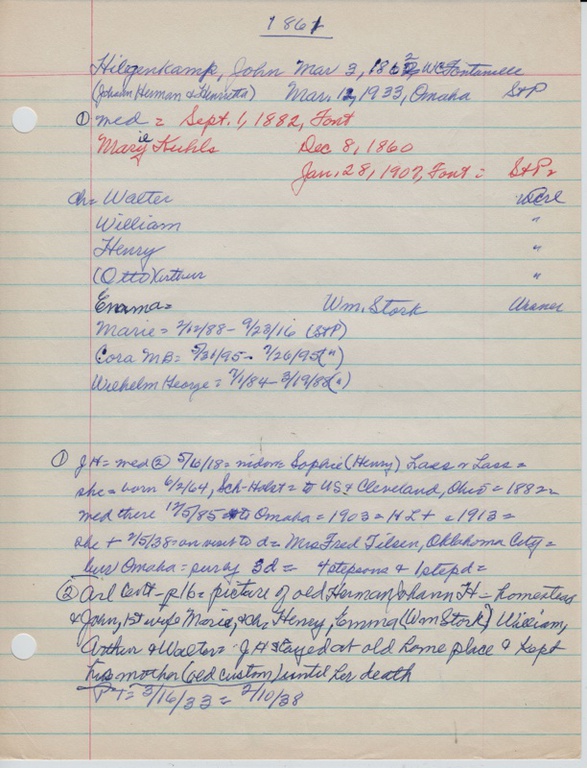 1861
Hilgenkamp, John Mar 3, 1862, WC Fontanelle
(Johann Herman & Henrietta) Mar. 12, 1933, Omaha St P
① med = Sept. 1, 1882, Font
Marie Kuhls Dec 8, 1860
Jan. 28, 1907, Font = St P
ch = Walter
William "
Henry "
(Otto) Arthur "
Emma = Wm. Stork
Marie = 2/12/88 - 9/23/16 (St P)
Cora MB = 5/31/95 - 7/26/95 (")
Wilhelm George = 7/1/84 - 3/19/88 (")
① JH = med ② 5/16/18 = widow = Sophie (Henry) Lass or Lass =
she = born 6/2/64, Sch-Holst = to US & Cleveland, Ohio = 1882 =
med there 12/5/85 to Omaha = 1903 = H L + = 1913 =
she + 2/5/38 = on visit to d = Mrs Fred Tilsen, Oklahoma City =
bur Omaha = surv by 3 d = 4 stepsons & 1 step d =
② Arl Cent - p 16 = picture of old Herman Johann H = homestead
& John, 1st wife Marie, & ch, Henry, Emma (Wm Stork) William,
Arthur & Walter = JH stayed at old home place & kept
his mother (old custom) until her death
PT = 3/16/33 = 2/10/38